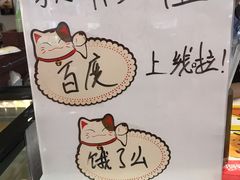 百度
上线啦!
饿了么